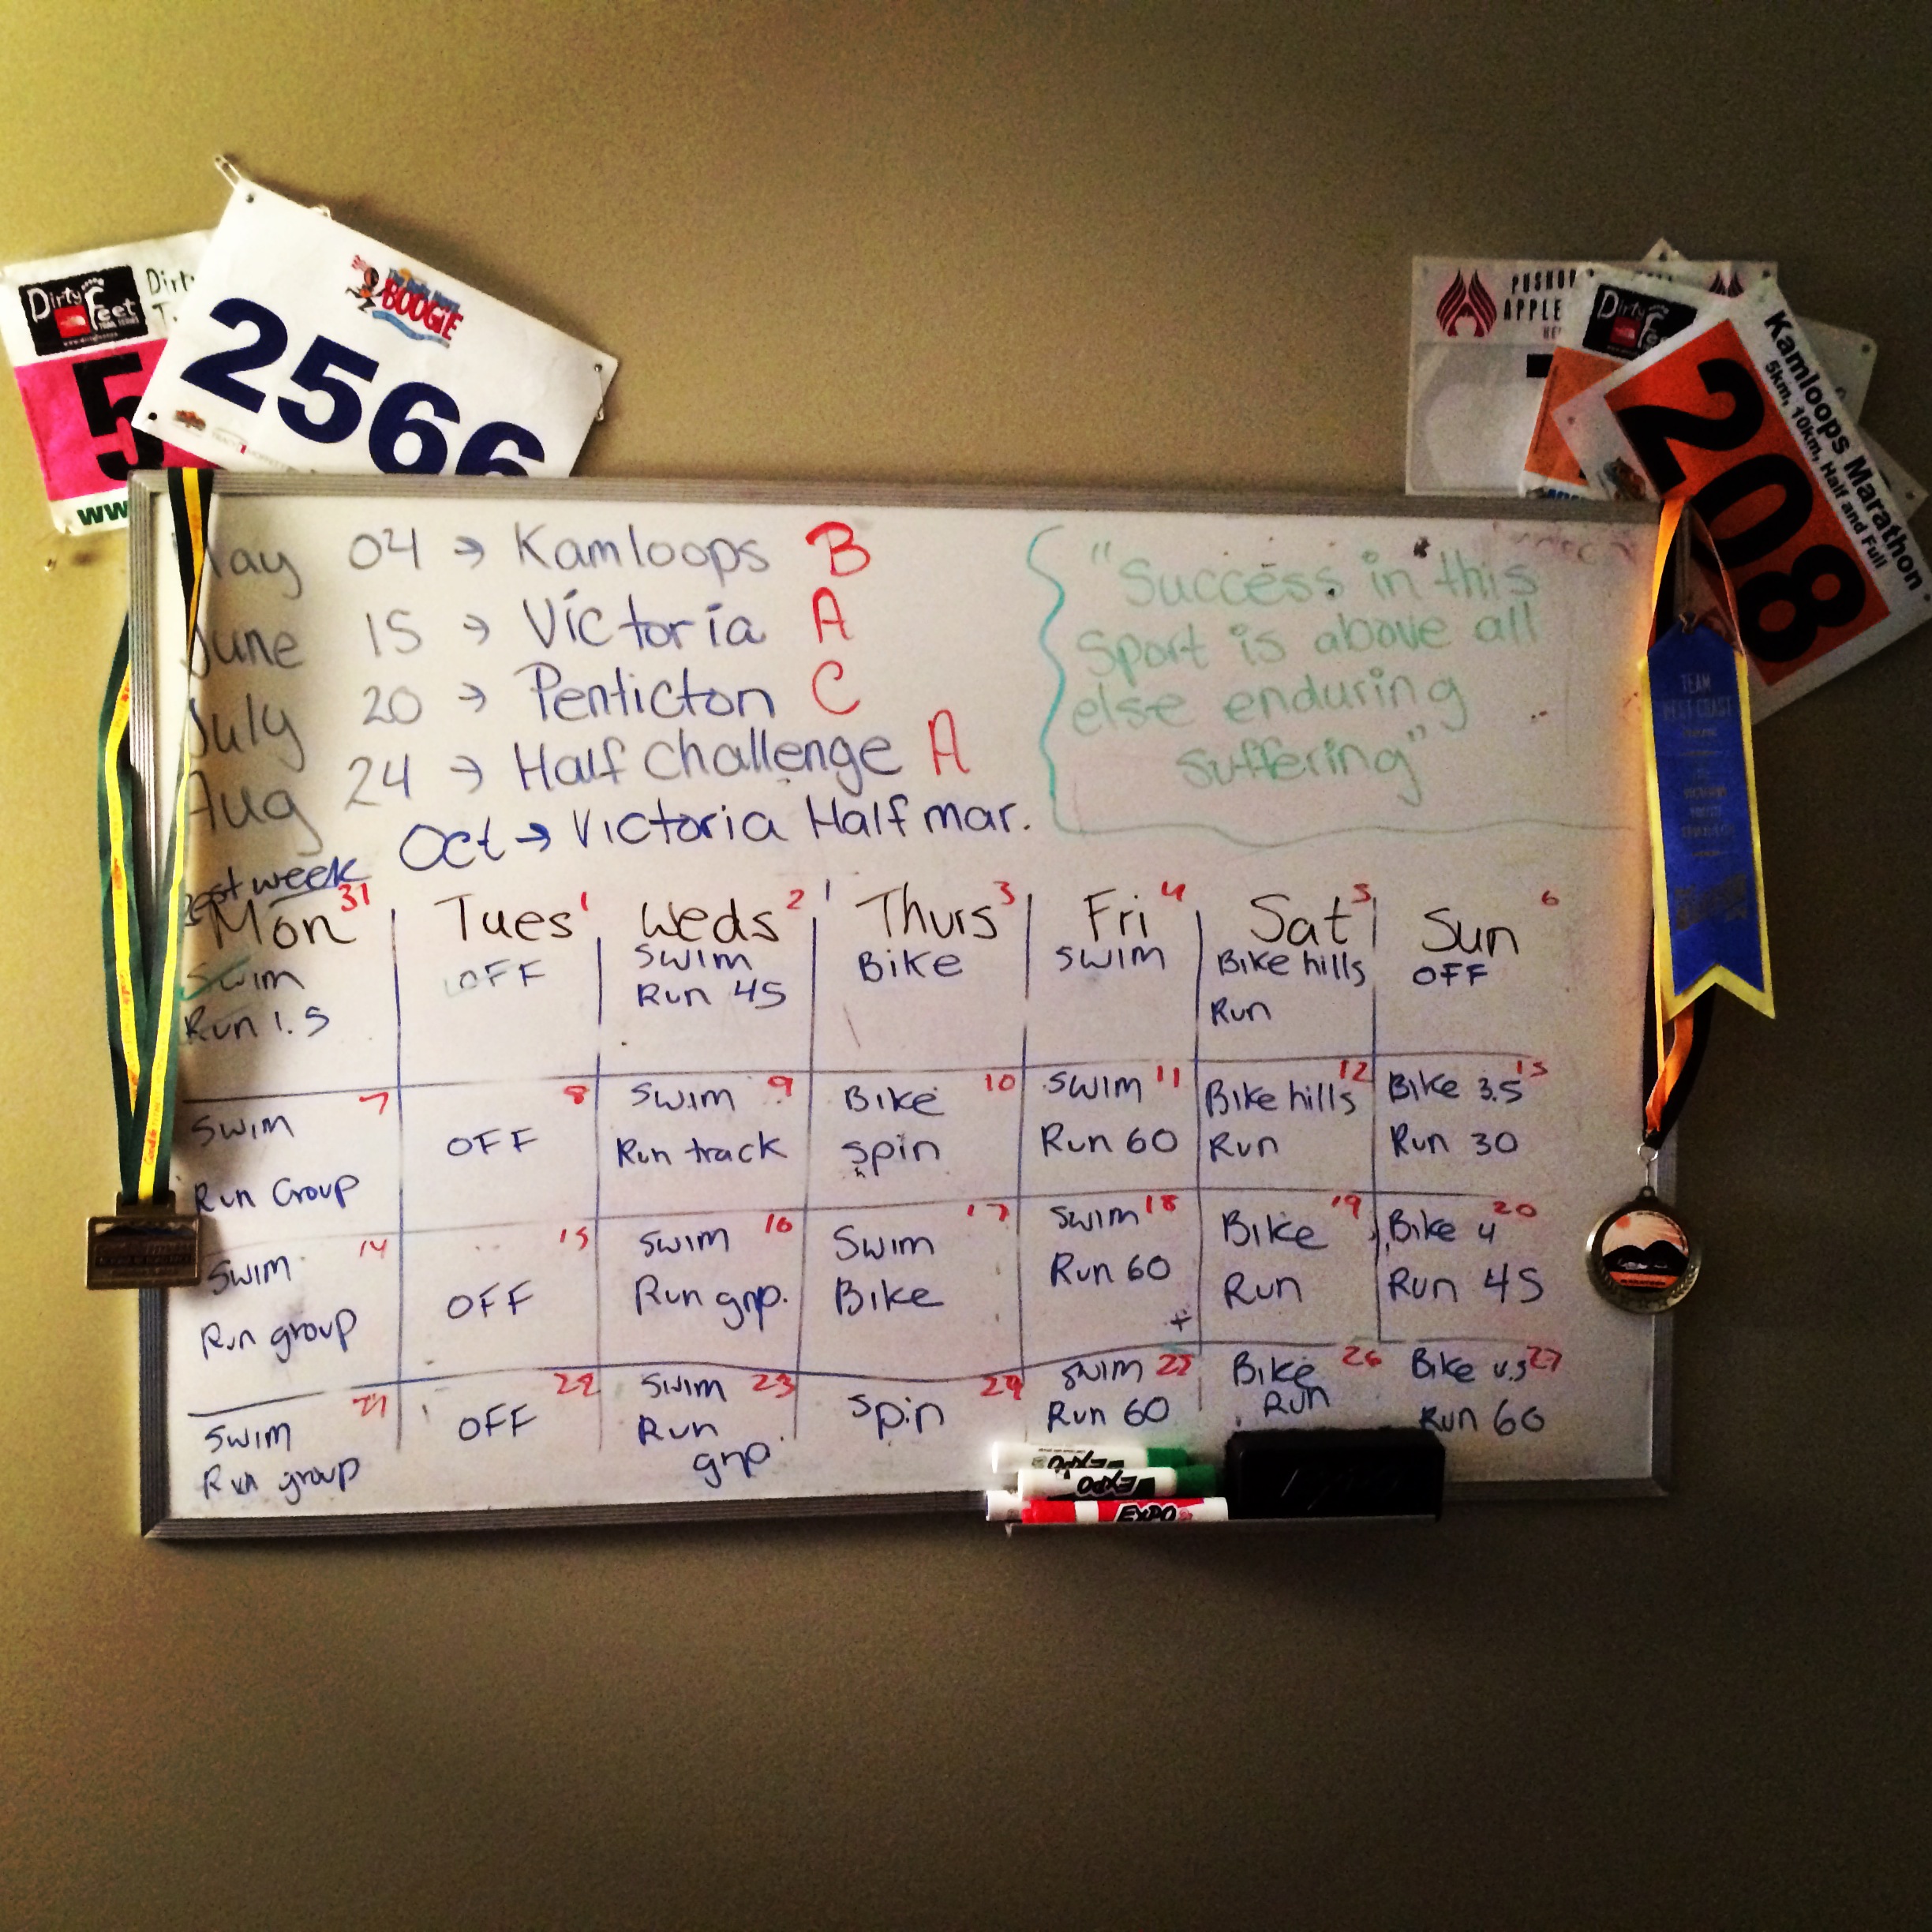 Dirty Feet
Dirt
5
ww
BOOGIE
2566
PUSHOR
APPLE
Dirty Fe
Kamloops Marathon
5km, 10km, Half and Full
208
May 04 → Kamloops B
June 15 → Victoria A
July 20 → Penticton C
Aug 24 → Half challenge A
Oct → Victoria Half mar.
"Success in this
sport is above all
else enduring
suffering"
TEAM
COAST
Rest week
Mon 31 Tues 1 Weds 2 Thurs 3 Fri 4 Sat 5 Sun 6
Swim
Run 1.5
OFF
Swim
Run 45
Bike
Swim
Bike hills
Run
OFF
7
Swim
Run Group
8
OFF
Swim 9
Run track
Bike 10
spin
Swim 11
Run 60
12
Bike hills
Run
13
Bike 3.5
Run 30
14
Swim
Run group
15
OFF
Swim 16
Run grp.
17
Swim
Bike
Swim 18
Run 60
+
19
Bike
Run
20
Bike 4
Run 45
21
Swim
Run group
22
OFF
Swim 23
Run
grp.
24
Spin
Swim 25
Run 60
Bike 26
Run
Bike 4.5 27
Run 60
EXPO
EXPO
EXPO